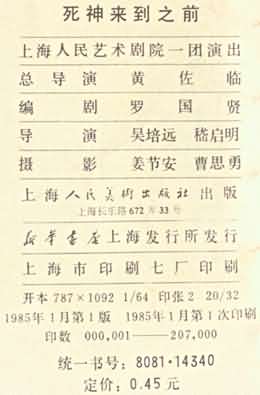 死神来到之前
上海人民艺术剧院一团演出
总导演 黄佐临
编剧 罗国贤
导演 吴培远 嵇启明
摄影 姜节安 曹思勇
上海人民美术出版社出版
上海长乐路672弄33号
新华书店上海发行所发行
上海市印刷七厂印刷
开本787×1092 1/64 印张2 20/32
1985年1月第1版 1985年1月第1次印刷
印数 000,001——207,000
统一书号：8081·14340
定价：0.45元